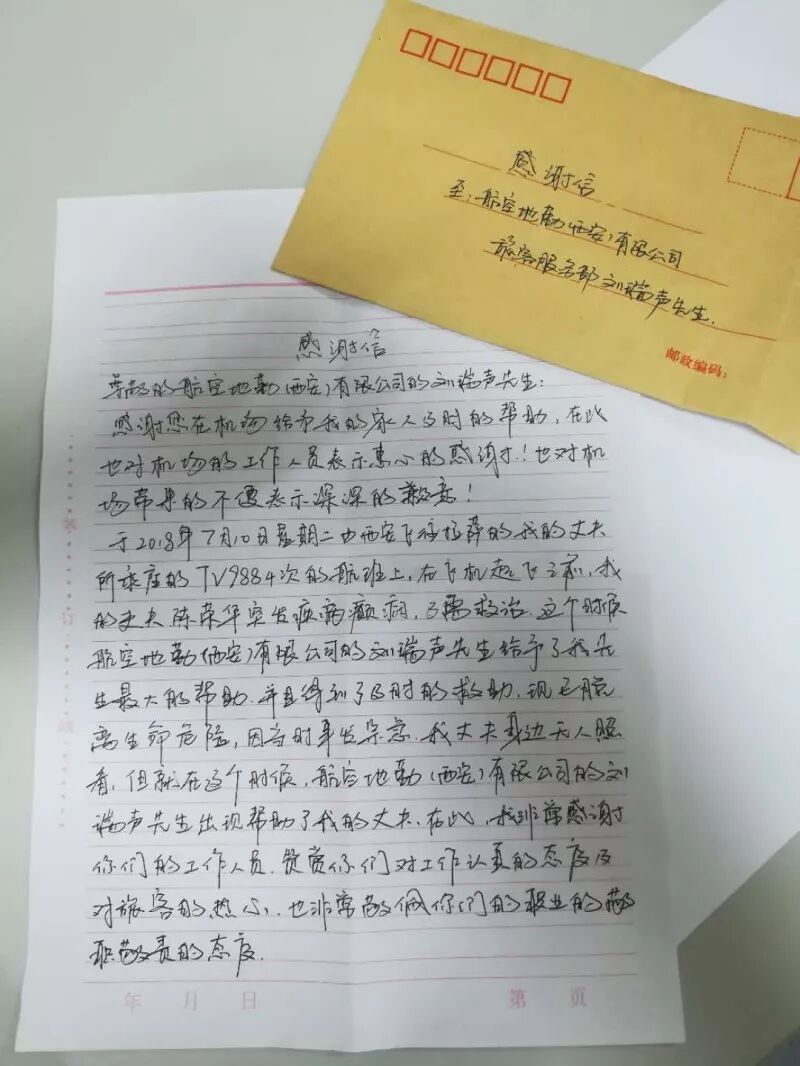 感谢信
至：航空地勤(西安)有限公司
旅客服务部刘瑞声先生.
邮政编码：
感谢信
尊敬的航空地勤(西安)有限公司的刘瑞声先生：
感谢您在机场给予我的家人及时的帮助，在此
也对机场的工作人员表示衷心的感谢！也对机
场带来的不便表示深深的歉意！
于2018年7月10日星期二由西安飞往拉萨的我的丈夫
所乘座的TV9884次的航班上，在飞机起飞之前，我
的丈夫陈荣华突发疾病癫痫，及需救治.这个时候
航空地勤(西安)有限公司的刘瑞声先生给予了我先
生最大的帮助.并且得到了及时的救助，现已脱
离生命危险，因当时事发紧急.我丈夫身边无人照
看，但就在这个时候，航空地勤(西安)有限公司的刘
瑞声先生出现帮助了我的丈夫.在此，我非常感谢
你们的工作人员.赞赏你们对工作认真的态度及
对旅客的热心，也非常敬佩你们的职业的敬
职敬责的态度.
装
订
线
年 月 日
第 页